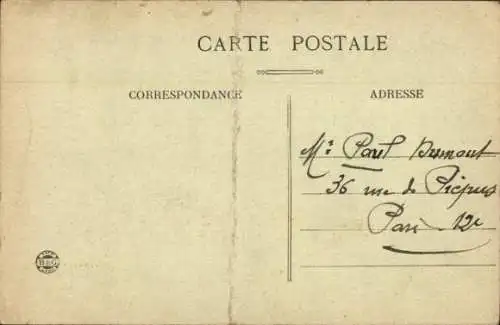 CARTE POSTALE
CORRESPONDANCE
ADRESSE
Mr Paul Dumont
36 rue de Picpus
Paris 12e